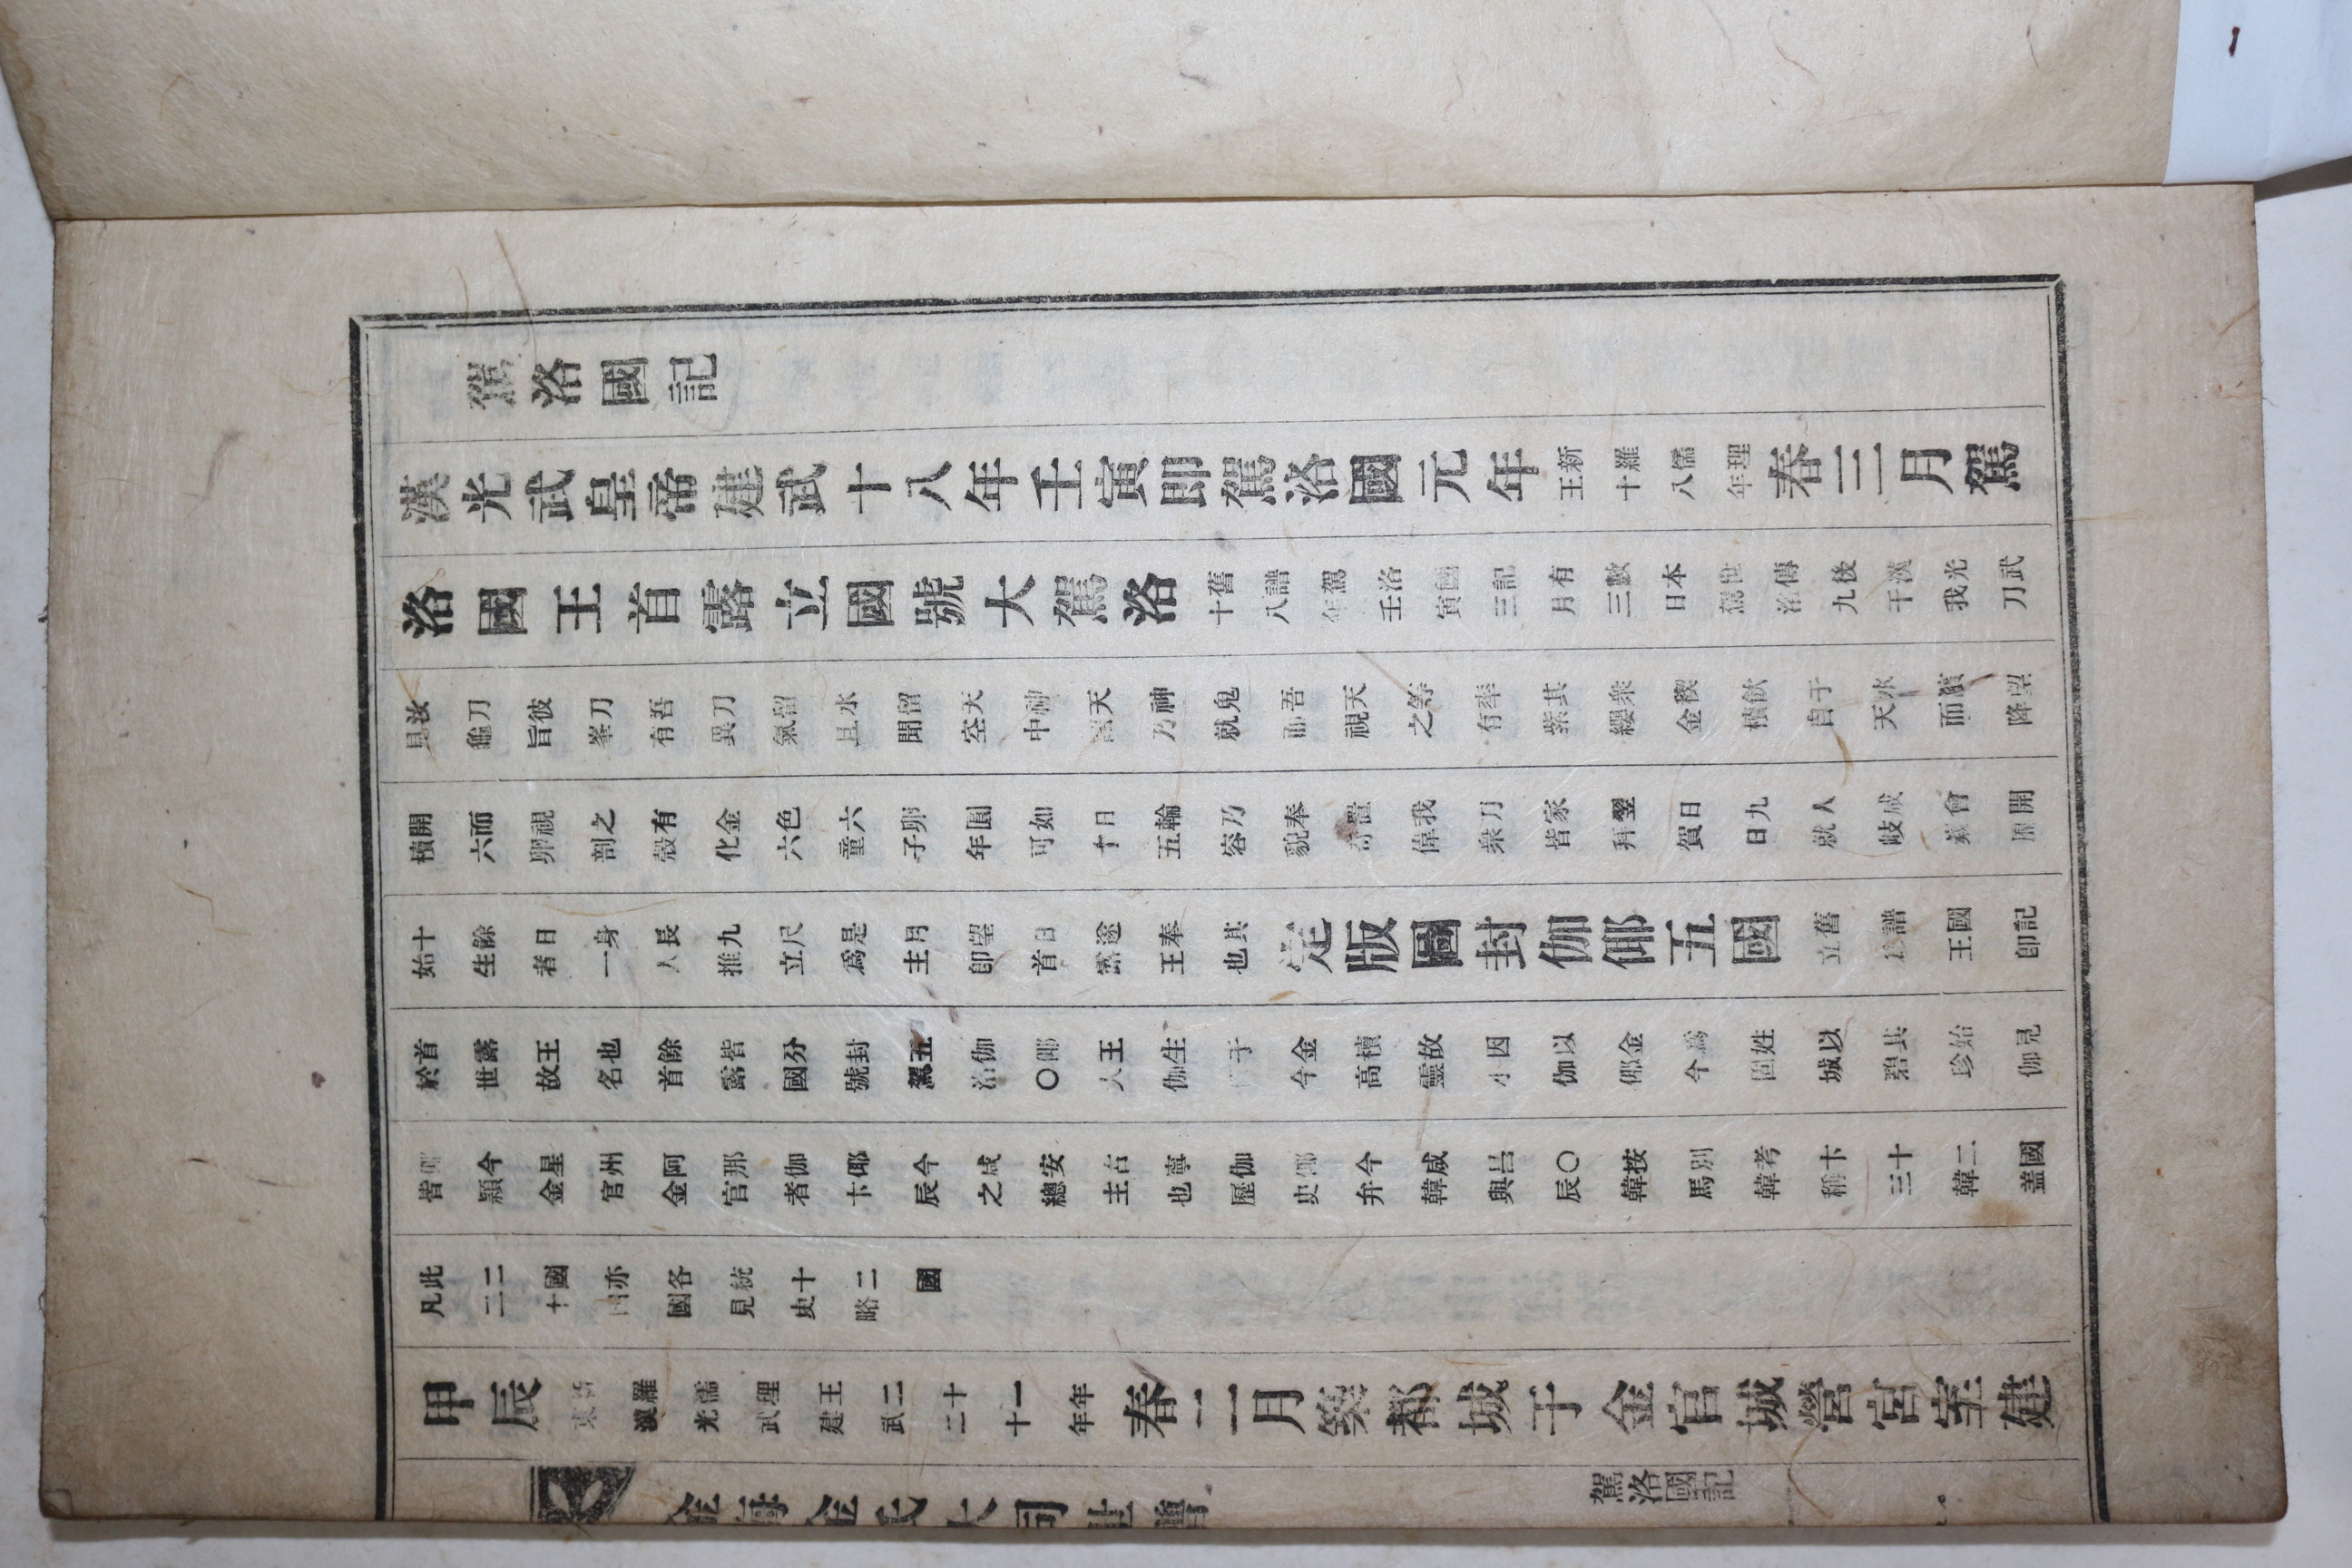 駕洛國記
漢光武皇帝建武十八年壬寅即駕洛國元年
新羅儒理
王十八年
春三月駕
洛國王首露立國號大駕洛
舊譜駕洛國記有數本世傳後漢光武
十八年壬寅三月三日駕洛九干我刀
汝刀彼刀吾刀留水留天神天神鬼吾天等率其衆稧飲于水濱望
見龜旨峯有異氣且聞空中語乃就而視之有紫纓金櫝自天而降
開而視之有金色六卵圓如日輪乃奉置我刀家翌日九人咸會開
櫝六卵剖殼化六童子年可十五容貌奇偉衆皆拜賀日就岐嶷歷
十餘日身長九尺是月望日遂奉其
始生者一人推立爲主卽首露王也
定版圖封伽倻五國
舊譜國記
立爲王卽
首露王也餘皆分封五伽倻王生于金櫝故因以金爲姓以其始見
於世故名首露國號駕洛〇大伽倻今高靈小伽倻今固城碧珍伽
倻今星州阿那伽倻今咸安古寧伽倻今咸昌〇按別考卞十二國
皆穎金官金官者卞辰之總主也歷史弁韓與辰韓馬韓稱三韓盖
此二國亦各統十二國
凡二十四國見史略
甲辰
新羅儒理王二十一年
東漢光武建武二十年
春二月築都城于金官城營宮室建
金海金氏大同世譜
駕洛國記
一